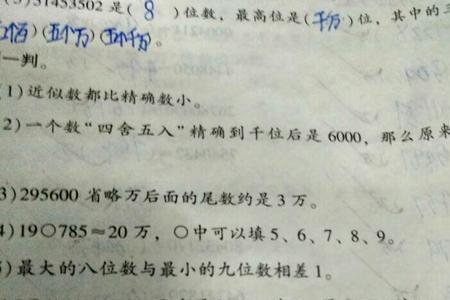 (3)31453502是( 8 )位数，最高位是(千万)位，其中的三
五个百)(五个万)(五个千万)。
一判。
1)近似数都比精确数小。
2)一个数“四舍五入”精确到千位后是6000，那么原来
3)295600 省略万后面的尾数约是3万。
4)19○785≈20万，○中可以填5、6、7、8、9。
5)最大的八位数与最小的九位数相差1。